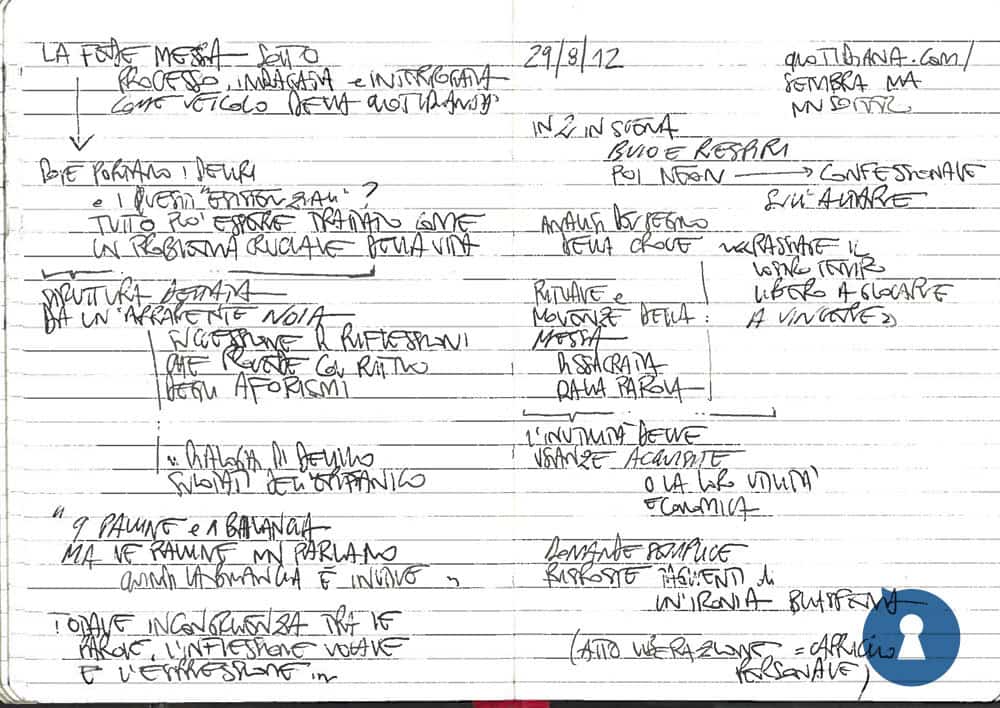 LA FEDE MESSA SOTTO
PROCESSO, INDAGATA e INTERROGATA
COME VEICOLO DELLA QUOTIDIANITÀ
DOVE PORTANO I DELIRI
e I QUESITI "ESISTENZIALI"?
TUTTO PUÒ ESSERE TRATTATO COME
UN PROBLEMA CRUCIALE DELLA VITA
STRUTTURA DETTATA
DA UN'APPARENTE NOIA
SUCCESSIONE DI RIFLESSIONI
CHE PROCEDE COL RITMO
DEGLI AFORISMI
DIALOGHI DI DELIRIO
SVUOTATI DELL'
" 9 PALLINE e 1 BILANCIA
MA LE PALLINE NON PARLANO
QUINDI LA BILANCIA È INUTILE "
TOTALE INCONGRUENZA TRA LE
PAROLE, L'INFLESSIONE VOCALE
E L'ESPRESSIONE
29/8/12
QUOTIDIANA.COM/
SEMBRA MA
NON SOFFRO
IN 2 IN SCENA
BUIO E RESPIRI
POI NEON → CONFESSIONALE
SULL'ALTARE
ANALISI DEL SEGNO
DELLA CROCE
PASSATE IL
LORO TEMPO
LIBERO A GIOCARE
A VINCERE»
RITUALE e
MOVENZE DELLA
MESSA
DISSACRATA
DALLA PAROLA
L'INUTILITÀ DELLE
USANZE ACQUISITE
O LA LORO UTILITÀ
ECONOMICA
DOMANDE SEMPLICI
RISPOSTE TAGLIENTI di
UN'IRONIA BLASFEMA
(ATTO LIBERAZIONE = CAPRICCIO
PERSONALE)